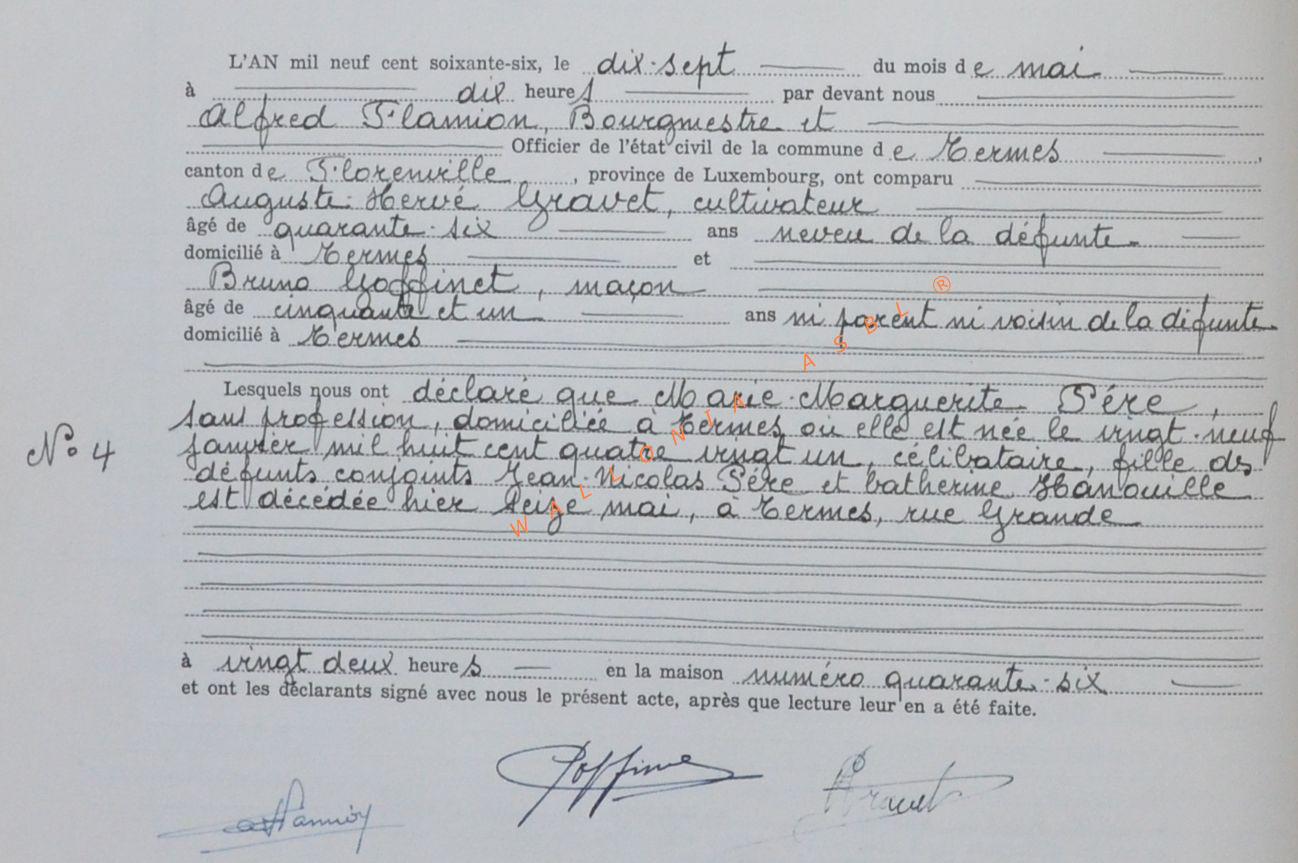 L'AN mil neuf cent soixante-six, le dix-sept du mois de mai
à dix heures par devant nous
Alfred Flamion, Bourgmestre et
Officier de l'état civil de la commune de Termes,
canton de Florenville, province de Luxembourg, ont comparu
Auguste-Hervé Gravet, cultivateur
âgé de quarante-six ans neveu de la défunte
domicilié à Termes et
Bruno Goffinet, maçon
âgé de cinquante et un ans ni parent ni voisin de la défunte
domicilié à Termes
Lesquels nous ont déclaré que Marie-Marguerite Père,
sans profession, domiciliée à Termes où elle est née le vingt-neuf
N° 4 janvier mil huit cent quatre vingt un, célibataire, fille des
défunts conjoints Jean-Nicolas Père et Catherine Hanouille
est décédée hier seize mai, à Termes, rue Grande
à vingt deux heures en la maison numéro quarante-six
et ont les déclarants signé avec nous le présent acte, après que lecture leur en a été faite.
Gravet
WALLONIA ASBL ®